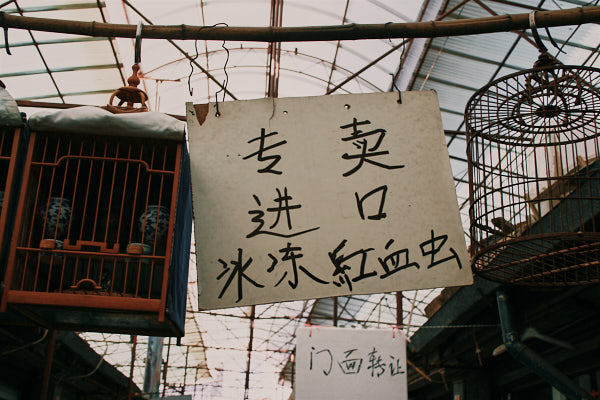 专卖
进口
冰冻红血虫
门面转让